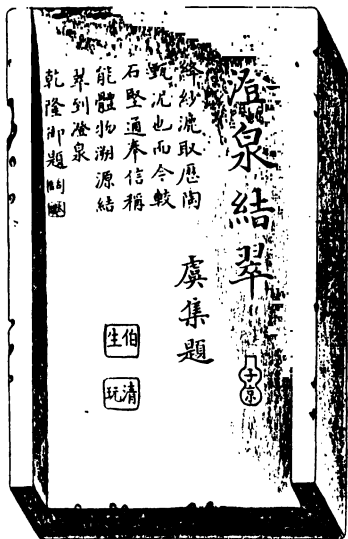 澄泉結翠
虞集題
伯生
清玩
絳紗漉取歷陶
甄泥也而今較
石堅通奉信稱
能體物溯源結
翠到澄泉
乾隆御題